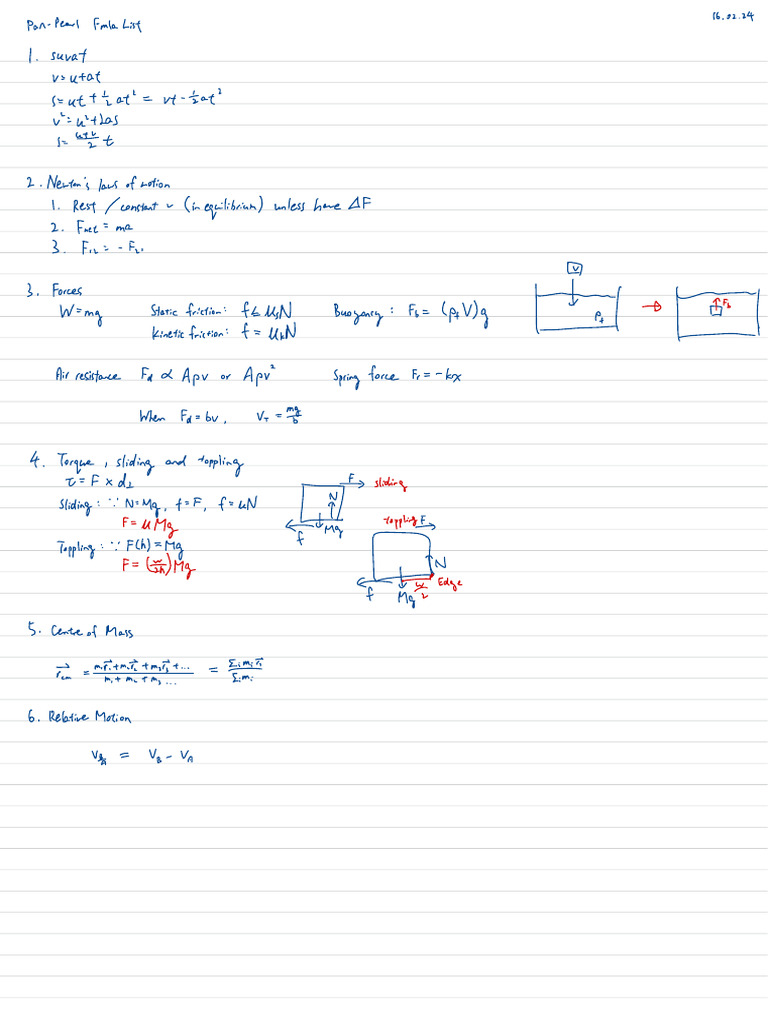 Pan-Pearl Fmla List
16.02.24
1. suvat
v=u+at
s=ut+½at² = vt-½at²
v²=u²+2as
s=(u+v)/2 t
2. Newton's laws of motion
1. Rest / constant v (in equilibrium) unless have ΔF
2. Fnet = ma
3. F₁₂ = -F₂₁
3. Forces
W=mg Static friction: f≤μsN Buoyancy: Fb = (ρfV)g
Kinetic friction: f = μkN
V
ρf
→
Fb
Air resistance Fd ∝ Aρv or Aρv² Spring force Fr = -kx
When Fd = bv, VT = mg/b
4. Torque, sliding and toppling
τ = F × d⊥
Sliding: ∵ N=Mg, f=F, f=μN
F = μMg
Toppling: ∵ F(h)=Mg
F = (w/2h)Mg
F sliding
N
f Mg
toppling F
N
f Mg w/2 Edge
5. Centre of Mass
r⃗cm = (m₁r⃗₁+m₂r⃗₂+m₃r⃗₃+...)/(m₁+m₂+m₃...) = Σᵢmᵢr⃗ᵢ/Σᵢmᵢ
6. Relative Motion
VB/A = VB - VA